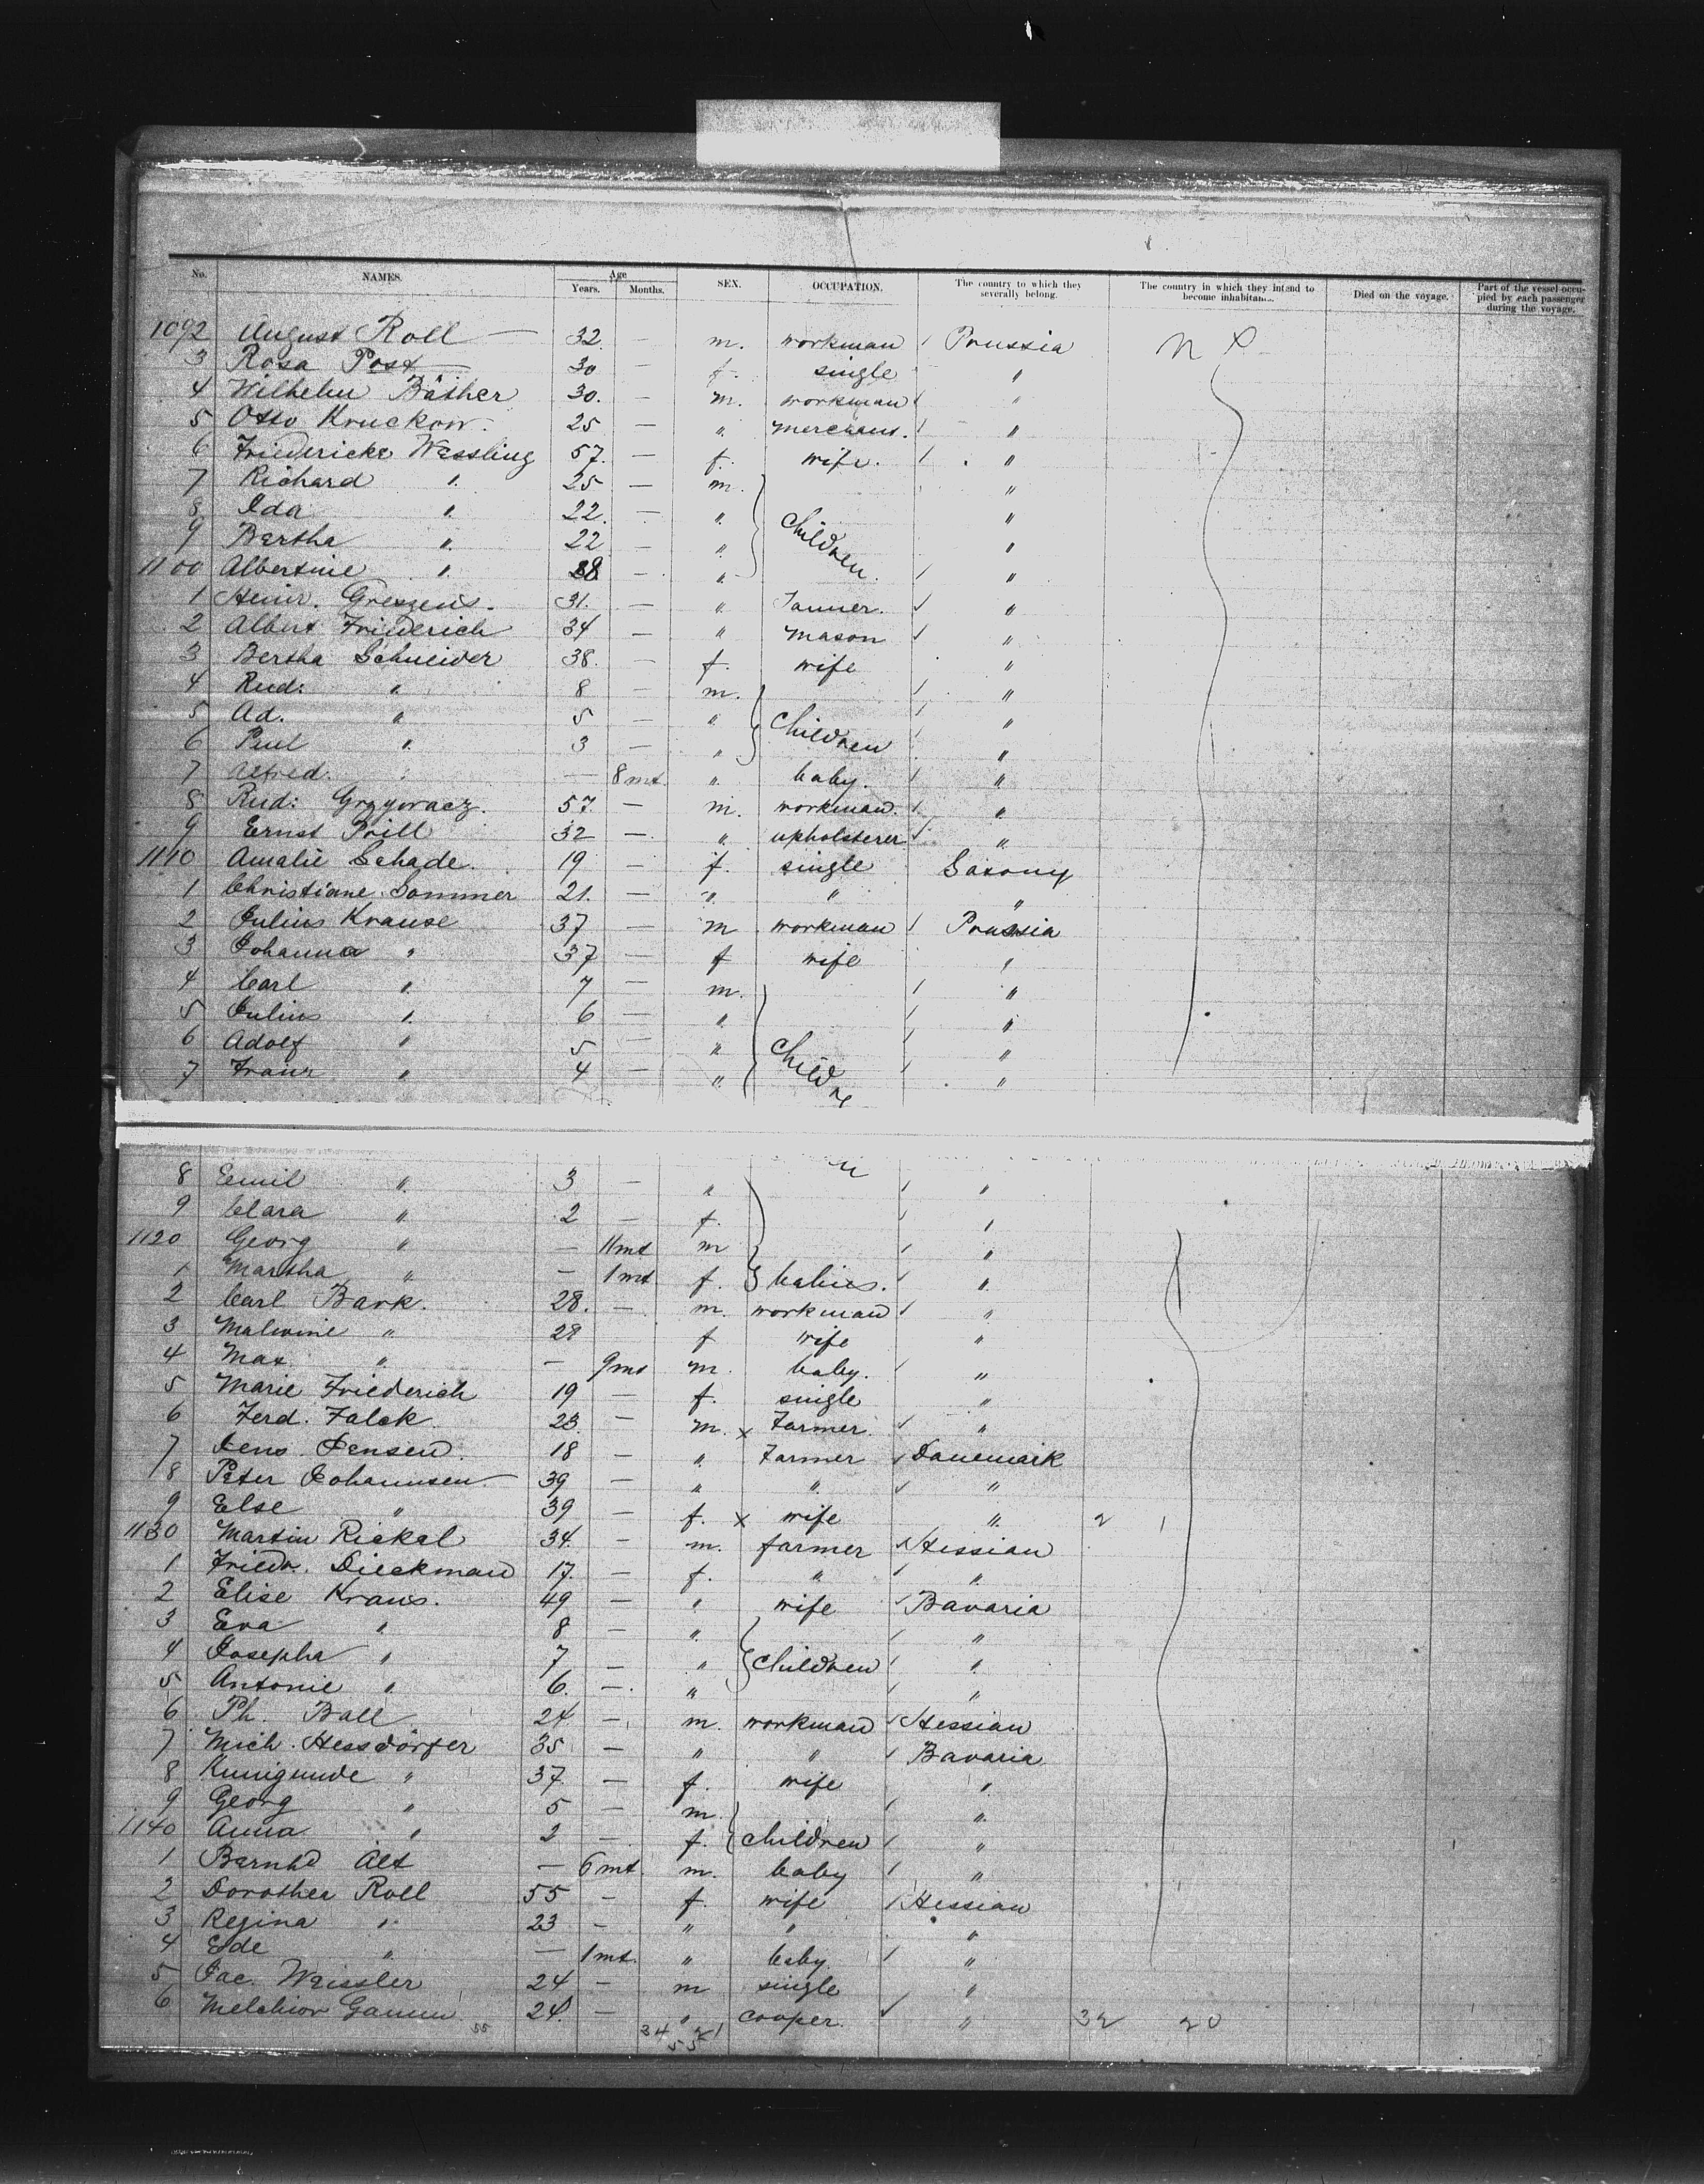 No. NAMES. Age Years. Months. SEX. OCCUPATION. The country to which they severally belong. The country in which they intend to become inhabitan... Died on the voyage. Part of the vessel occupied by each passenger during the voyage.
1092 August Roll 32. — m. workman Prussia
3 Rosa Post 30 — f. single "
4 Wilhelm Bäther 30. — m. workman "
5 Otto Kruckow. 25 — " merchant. "
6 Friedericke Wessling 57. — f. wife. "
7 Richard " 25 — m. "
8 Ida " 22. — " Children. "
9 Bertha " 22 — " "
1100 Albertine " — " "
1 Heinr. Greszens. 31. — " Tanner. "
2 Albert Friederich 34 — " mason "
3 Bertha Schneider 38. — f. wife "
4 Rud: " 8 — m. "
5 Ad. " 5 — " Children "
6 Paul " 3 — " "
7 Alfred. " — 8 mt " baby. "
8 Rud: 57. — m. workman. "
9 Ernst Prill 32 — " upholsterer "
1110 Amalie Schade. 19 — f. single Saxony
1 Christiane Sommer 21. — " " "
2 Julius Krause 37 — m workman Prussia
3 Johanna " 37 — f wife "
4 Carl " 7 — m. "
5 Julius " 6 — " "
6 Adolf " 5 — " Children "
7 Franz " 4 — " "
8 Emil " 3 — " "
9 Clara " 2 — f. "
1120 Georg " — 11mt m "
1 Martha " — 1mt f. babies. "
2 Carl Bark. 28. — m. workman "
3 Malwine " 28 f wife "
4 Max " — 9mt m. baby. "
5 Marie Friederich 19 — f. single "
6 Ferd. Falck 23. — m. x Farmer. "
7 Jens Jensen. 18 — " Farmer Danemark
8 Peter Johannsen 39 — " " "
9 Else " 39 — f. x wife " 2 1
1130 Martin Rickal 34. — m. farmer Hessian
1 Friedr. Dieckman 17. — f. " "
2 Elise Kraus. 49 — " wife Bavaria
3 Eva " 8 — " "
4 Josepha " 7 — " Children "
5 Antonie " 6. — " "
6 Ph. Ball 24 — m. workman Hessian
7 Mich. Hessdörfer 35 — " " Bavaria
8 Kunigunde " 37 — f. wife "
9 Georg " 5 — m. "
1140 Anna " 2 — f. children "
1 Bernhd Alt — 6 mt. m. baby "
2 Dorothea Roll 55 — f. wife Hessian
3 Regina " 23 — " " "
4 Ede " — 1mt. " baby. "
5 Jac. Weissler 24 — m single "
6 Melchior Gamm 24. — " cooper. " 32 20
55 34 21
55